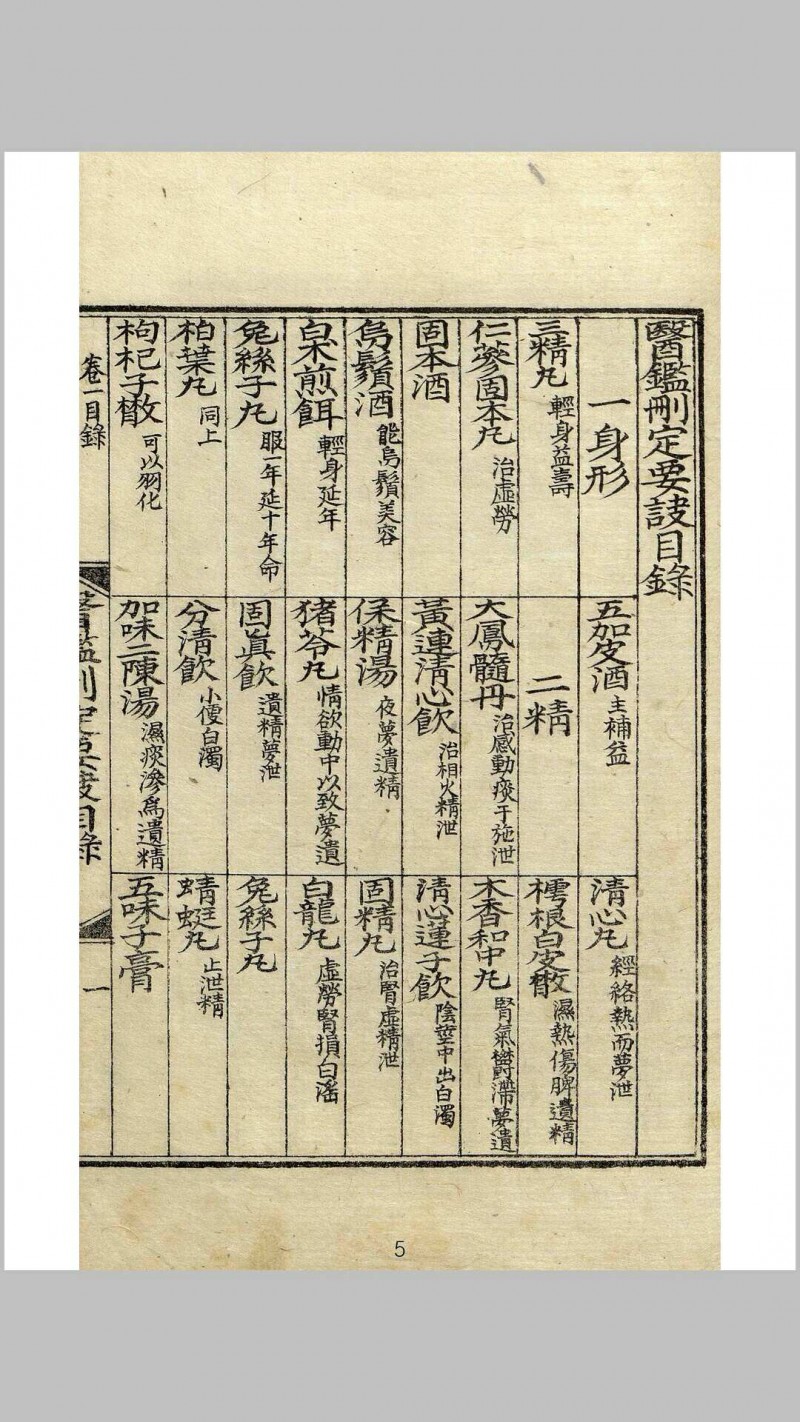 醫鑑刪定要訣目錄
一身形
三精丸 輕身益壽
仁蔘固本丸 治虛勞
固本酒
烏鬚酒 能烏鬚美容
白朮煎餌 輕身延年
兔絲子丸 服一年延十年命
柏葉丸 同上
枸杞子散 可以羽化
五加皮酒 主補益
二精
大鳳髓丹 治感動痰干施泄
黃連淸心飮 治相火精泄
保精湯 夜夢遺精
猪苓丸 情欲動中以致夢遺
固眞飮 遺精夢泄
分淸飮 小便白濁
加味二陳湯 濕痰滲爲遺精
淸心丸 經絡熱而夢泄
樗根白皮散 濕熱傷脾遺精
木香和中丸 腎氣欝滯夢遺
淸心蓮子飮 陰莖中出白濁
固精丸 治腎虛精泄
白龍丸 虛勞腎損白滛
兔絲子丸
蜻蜓丸 止泄精
五味子膏
卷一目錄
醫鑑刪定要訣目錄
一
5